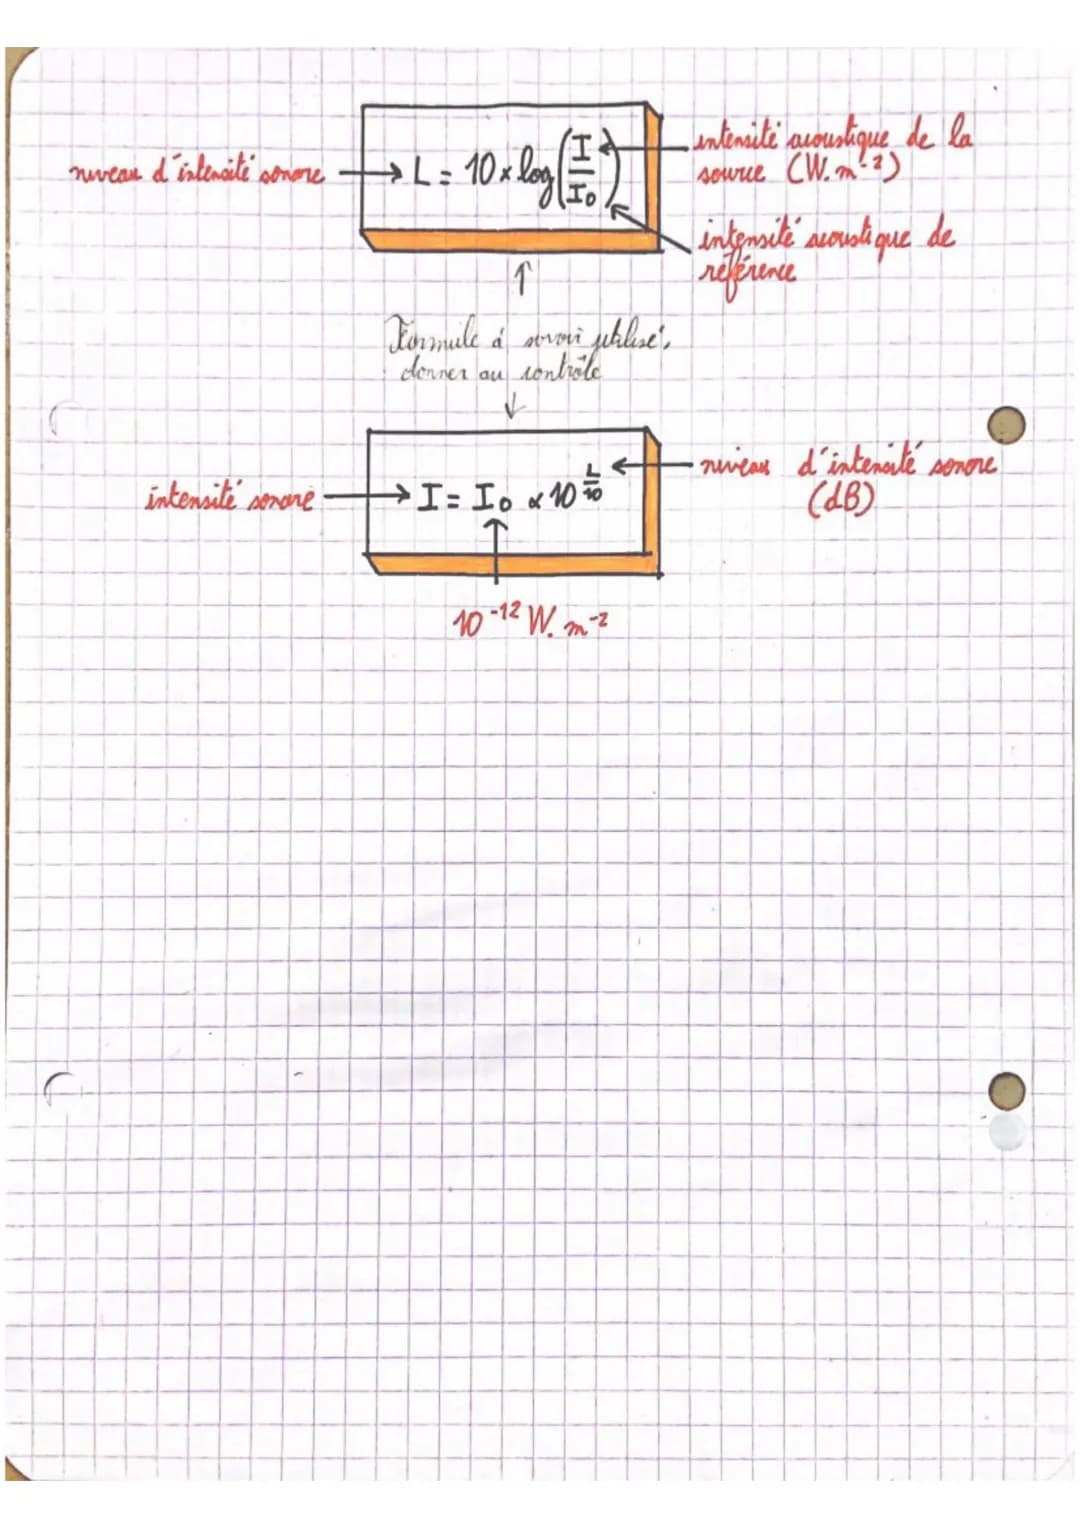 niveau d'intensité sonore → L = 10 × log(I/I₀)
intensité acoustique de la
source (W.m⁻²)
intensité acoustique de
référence
↑
Formule à savoir utilisé,
donner au contrôle
↓
intensité sonore → I = I₀ × 10^(L/10)
niveau d'intensité sonore
(dB)
10⁻¹² W.m⁻²